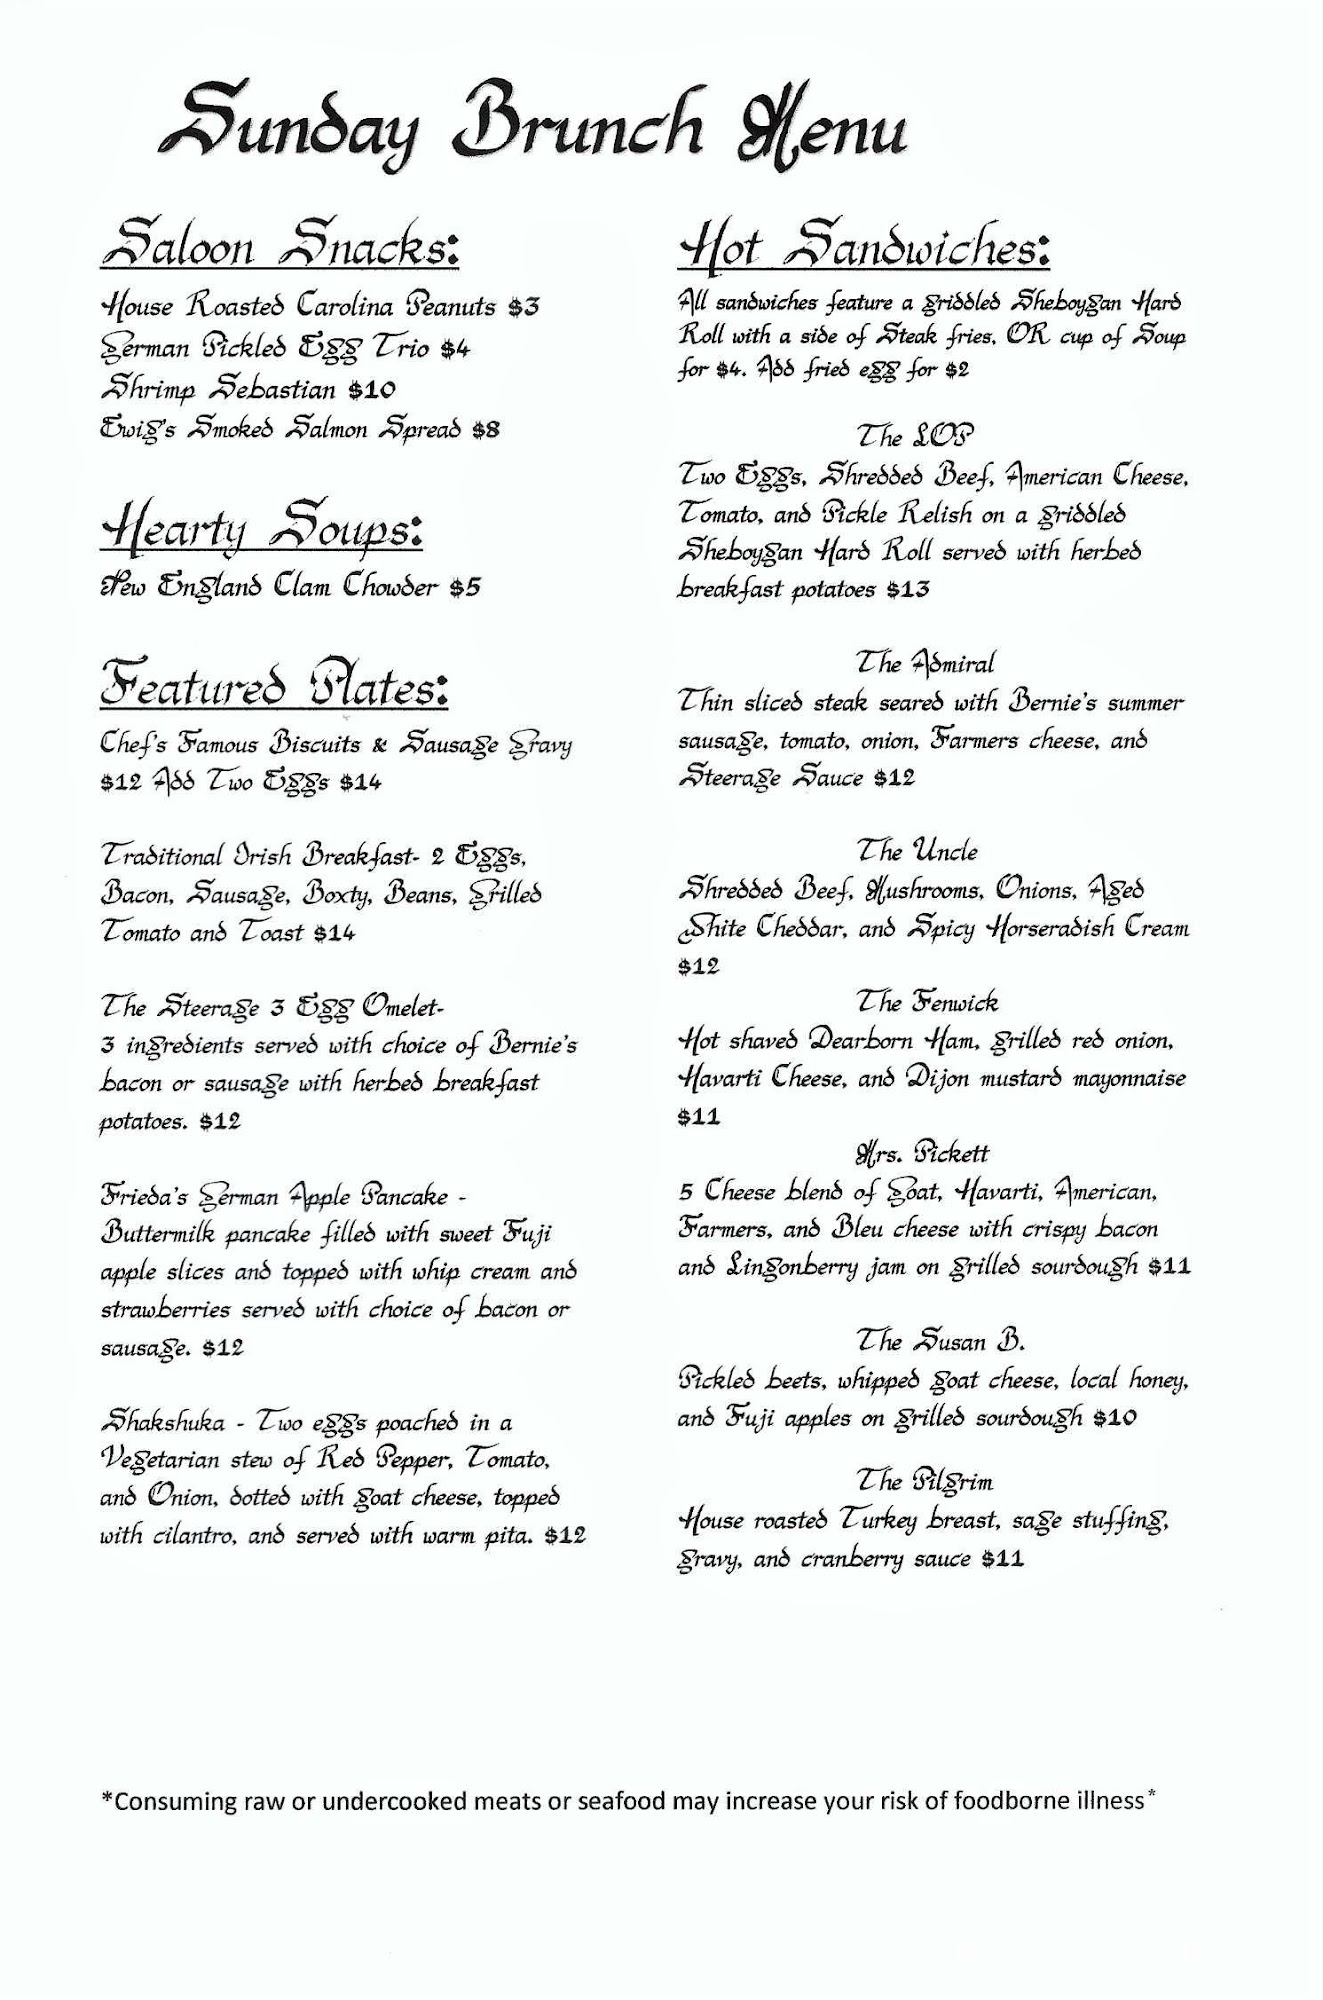 Sunday Brunch Menu
Saloon Snacks:
House Roasted Carolina Peanuts $3
German Pickled Egg Trio $4
Shrimp Sebastian $10
Ewig's Smoked Salmon Spread $8
Hearty Soups:
New England Clam Chowder $5
Featured Plates:
Chef's Famous Biscuits & Sausage Gravy
$12 Add Two Eggs $14
Traditional Irish Breakfast- 2 Eggs,
Bacon, Sausage, Boxty, Beans, Grilled
Tomato and Toast $14
The Steerage 3 Egg Omelet-
3 ingredients served with choice of Bernie's
bacon or sausage with herbed breakfast
potatoes. $12
Frieda's German Apple Pancake -
Buttermilk pancake filled with sweet Fuji
apple slices and topped with whip cream and
strawberries served with choice of bacon or
sausage. $12
Shakshuka - Two eggs poached in a
Vegetarian stew of Red Pepper, Tomato,
and Onion, dotted with goat cheese, topped
with cilantro, and served with warm pita. $12
Hot Sandwiches:
All sandwiches feature a griddled Sheboygan Hard
Roll with a side of Steak fries, OR cup of Soup
for $4. Add fried egg for $2
The LOP
Two Eggs, Shredded Beef, American Cheese,
Tomato, and Pickle Relish on a griddled
Sheboygan Hard Roll served with herbed
breakfast potatoes $13
The Admiral
Thin sliced steak seared with Bernie's summer
sausage, tomato, onion, Farmers cheese, and
Steerage Sauce $12
The Uncle
Shredded Beef, Mushrooms, Onions, Aged
White Cheddar, and Spicy Horseradish Cream
$12
The Fenwick
Hot shaved Dearborn Ham, grilled red onion,
Havarti Cheese, and Dijon mustard mayonnaise
$11
Mrs. Pickett
5 Cheese blend of Goat, Havarti, American,
Farmers, and Bleu cheese with crispy bacon
and Lingonberry jam on grilled sourdough $11
The Susan B.
Pickled beets, whipped goat cheese, local honey,
and Fuji apples on grilled sourdough $10
The Pilgrim
House roasted Turkey breast, sage stuffing,
gravy, and cranberry sauce $11
*Consuming raw or undercooked meats or seafood may increase your risk of foodborne illness*